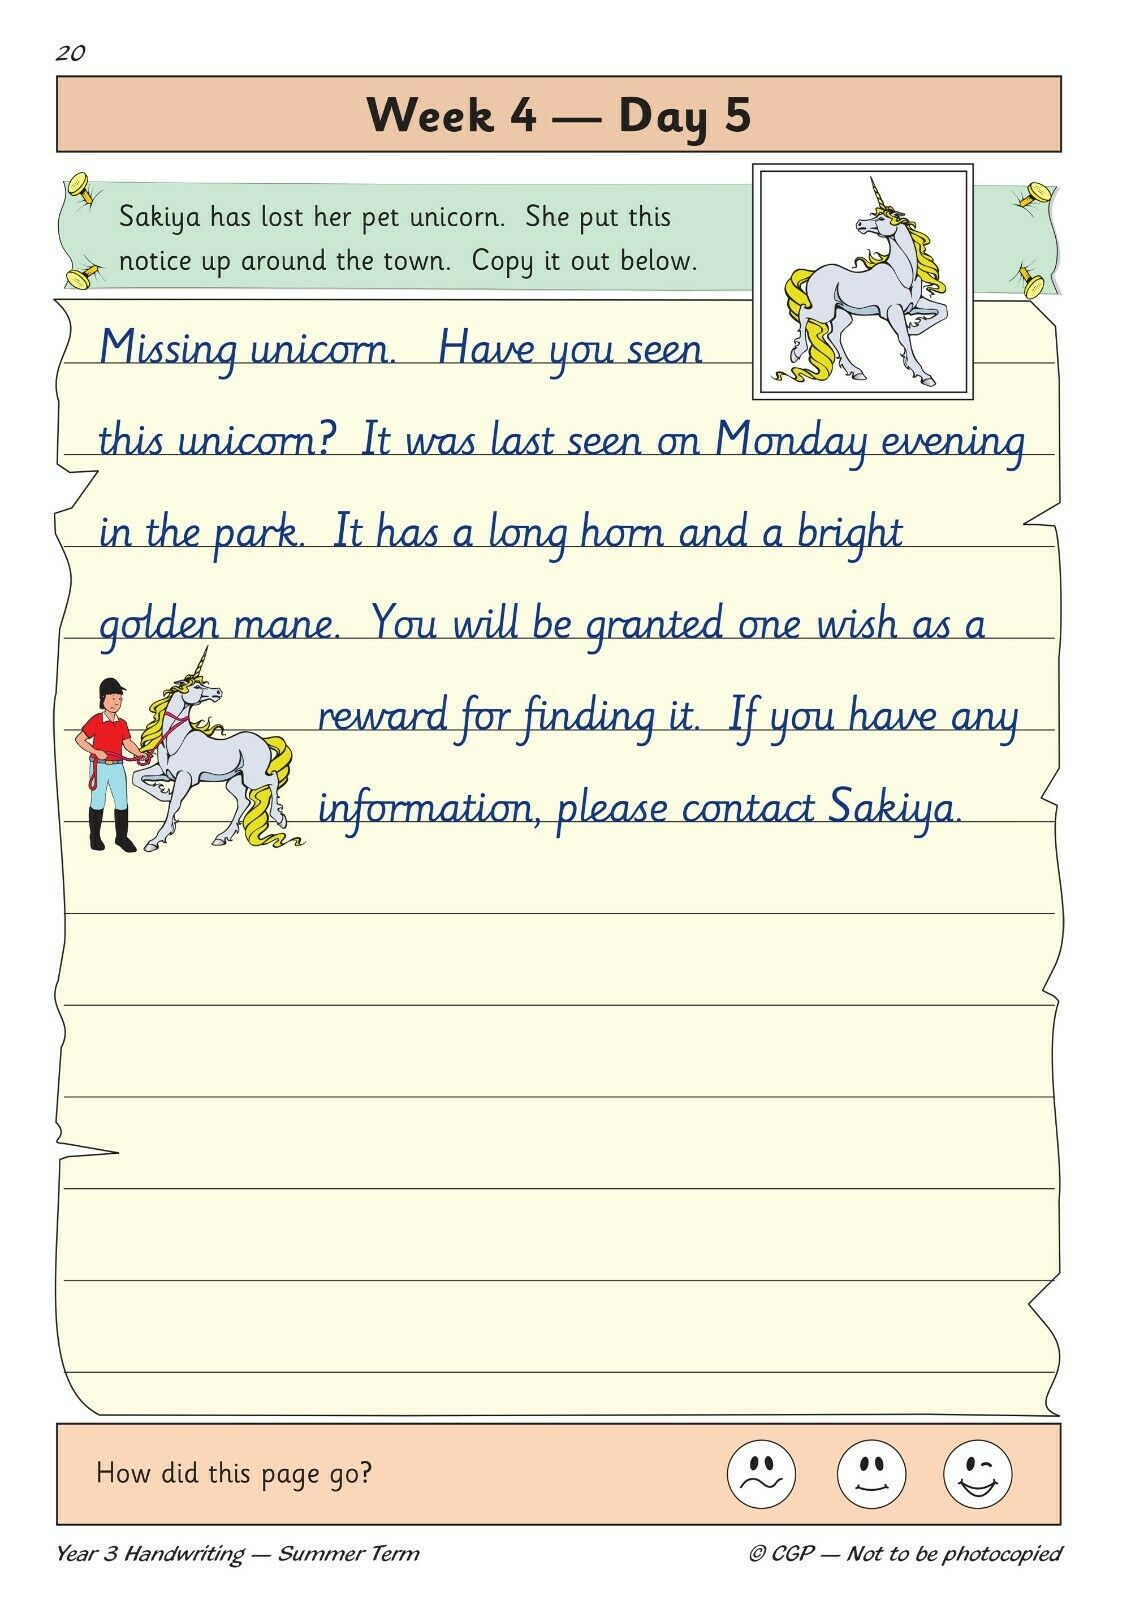 20
Week 4 — Day 5
Sakiya has lost her pet unicorn. She put this
notice up around the town. Copy it out below.
Missing unicorn. Have you seen
this unicorn? It was last seen on Monday evening
in the park. It has a long horn and a bright
golden mane. You will be granted one wish as a
reward for finding it. If you have any
information, please contact Sakiya.
How did this page go?
Year 3 Handwriting — Summer Term
© CGP — Not to be photocopied